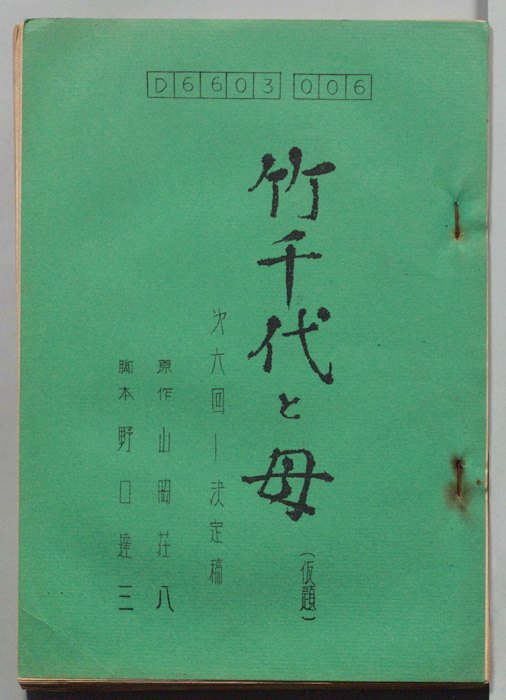 D6603 006
竹千代と母
(仮題)
次六回ー決定稿
原作 山岡荘八
脚本 野口達二